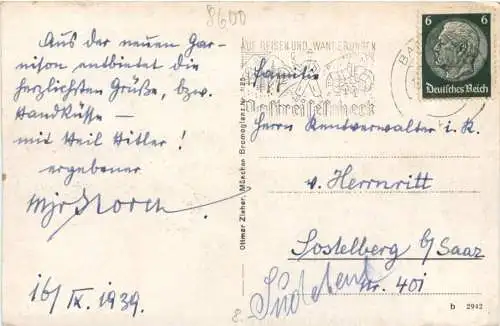 8600
Aus der neuen Gar-
nison entbietet die
herzlichsten Grüße, bzw.
Handküsse –
mit Heil Hitler!
ergebener
Mjr
16/IX. 1939.
Ottmar Zieher, München Bromeglanz Nr.
AUF REISEN UND WANDERUNGEN
Postreisescheck
6 6
Deutsches Reich
BA
Familie
Herrn Rentverwalter i. R.
v. Herrnritt
Sostelberg b/Saaz
Nr. 401
b 2942